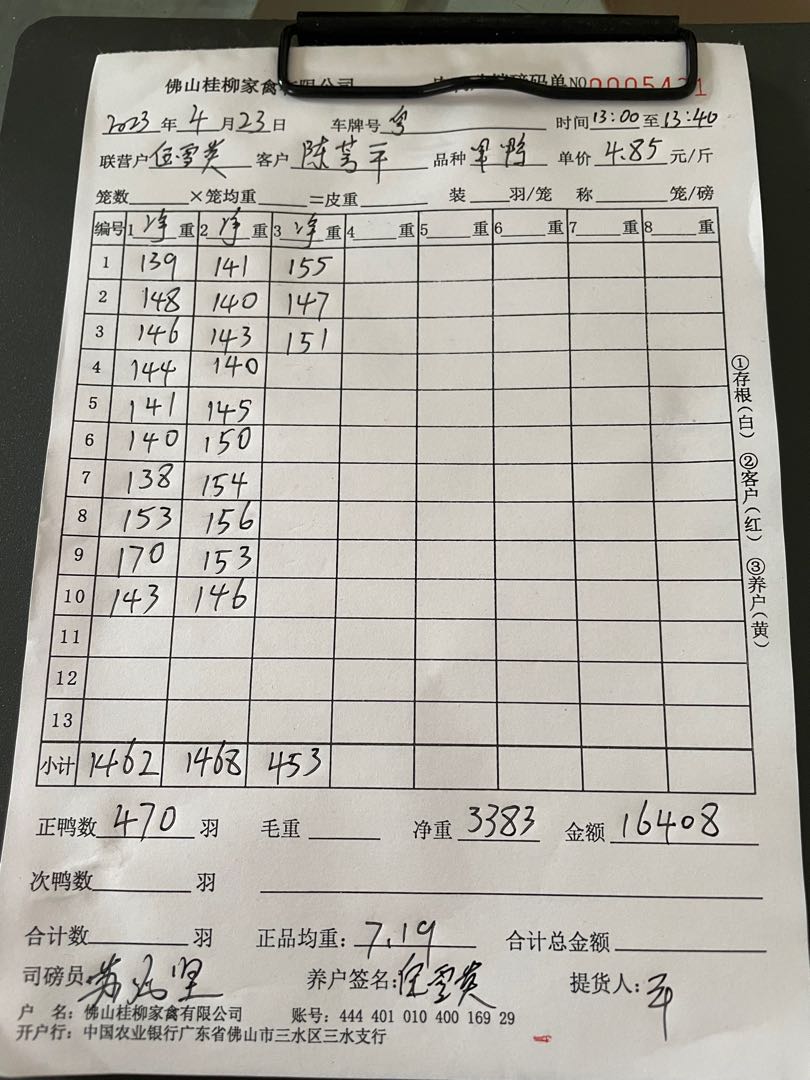 佛山桂柳家禽有限公司 磅码单NO0005421
2023年4月23日 车牌号粤 时间13:00至13:40
联营户伍雪英 客户陈 平 品种 鸭 单价4.85元/斤
笼数 ×笼均重 =皮重 装 羽/笼 称 笼/磅
编号 1净重 2净重 3净重 4 重 5 重 6 重 7 重 8 重
1 139 141 155
2 148 140 147
3 146 143 151
4 144 140
5 141 145
6 140 150
7 138 154
8 153 156
9 170 153
10 143 146
11
12
13
小计 1462 1468 453
①存根(白) ②客户(红) ③养户(黄)
正鸭数470羽 毛重 净重3383 金额16408
次鸭数 羽
合计数 羽 正品均重:7.19 合计总金额
司磅员: 养户签名:伍雪英 提货人:平
户 名:佛山桂柳家禽有限公司 账号:444 401 010 400 169 29
开户行:中国农业银行广东省佛山市三水区三水支行